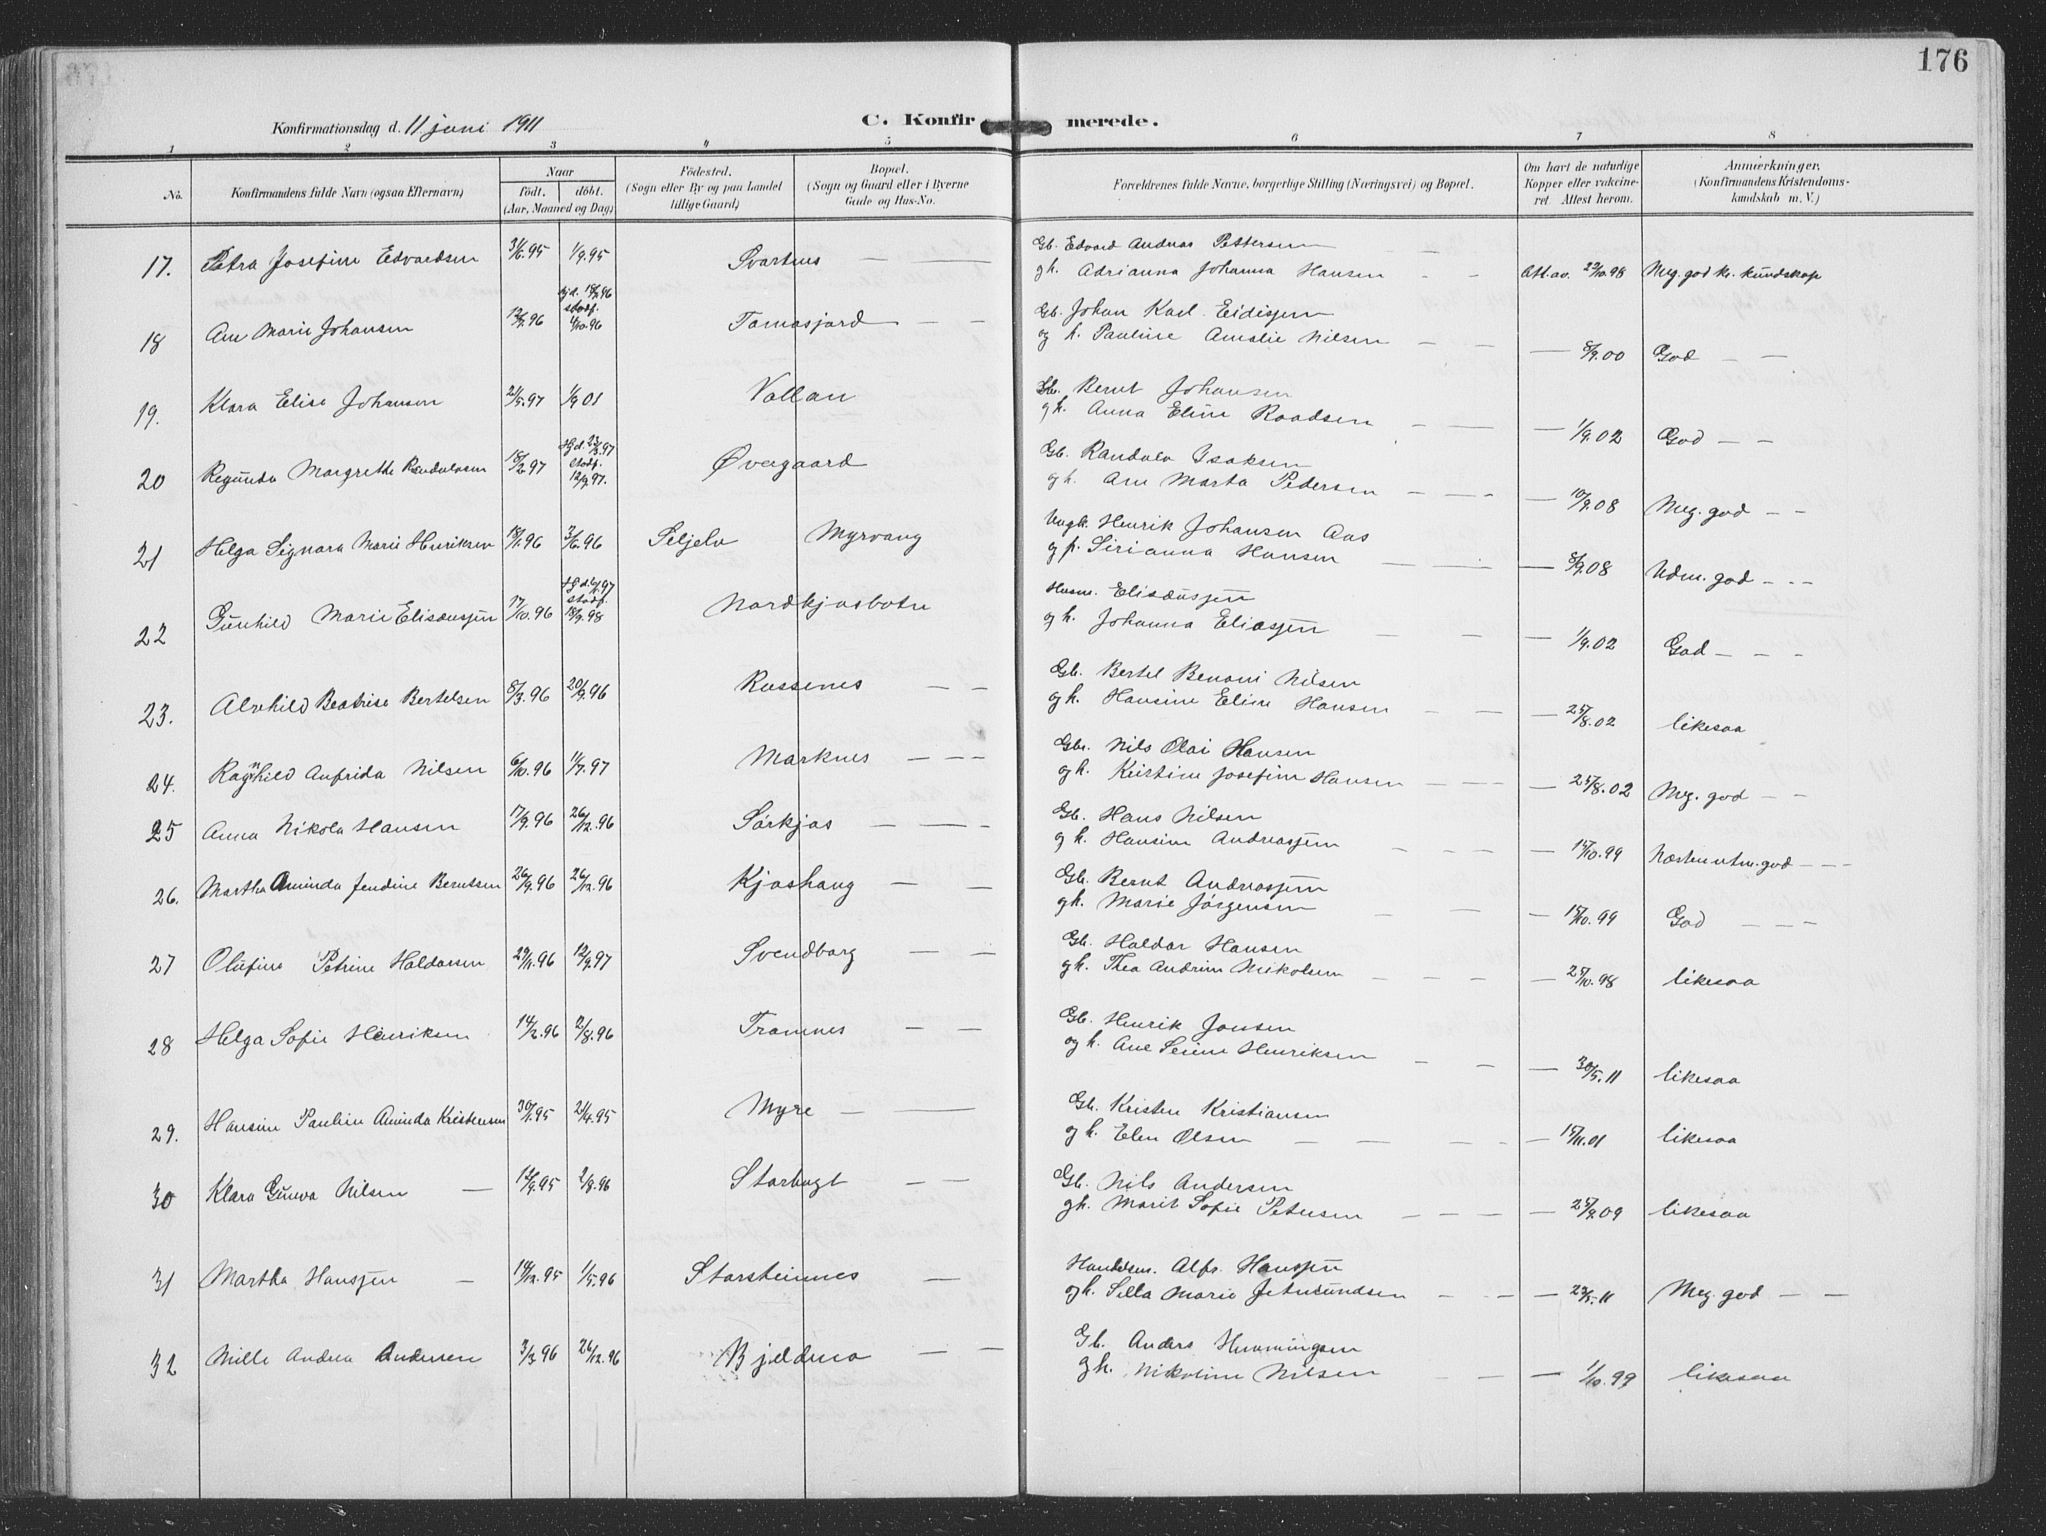 176
Konfirmationsdag d. 11 juni 1911
C. Konfirmerede.
1 2 3 4 5 6 7 8
No.
Konfirmandens fulde Navn (ogsaa Efternavn)
Naar
födt. döbt.
(Aar, Maaned og Dag)
Födested.
(Sogn eller By og paa Landet
tillige Gaard)
Bopæl.
(Sogn og Gaard eller i Byerne
Gade og Hus-No.
Forældrenes fulde Navne, borgerlige Stilling (Næringsvei) og Bopæl.
Om havt de naturlige
Kopper eller vakcine-
ret. Attest herom.
Anmærkninger.
(Konfirmandens Kristendoms-
kundskab m. V.)
17. Petra Josefine Edvardsen 3/6.95 1/9.95 Svartnes — —
Gb. Edvard Andreas Pettersen —
og h. Adrianna Johanna Hansen - - Att. av. 22/10.98 Meg. god kr. kundskap
18 Ane Marie Johansen 12/7.96 hjd. 18/7.96 stadf. 4/10.96 Tomasjord — —
Gb. Johan Karl Eidisjen
og h. Pauline Amalie Nilsen — — — 8/9.00 God — —
19. Klara Elise Johansen 21/5.97 1/9 01 Vollan
Gb. Bernt Johansen
og h. Anna Eline Roadsen — — — 1/9.02 God — —
20 Regunda Margrethe Randulvsen 18/2.97 Hjd. 23/3.97 stadf. 12/9.97. Øvergaard
Gb. Randulv Isaksen
og h. Ane Marta Pedersen — — — 10/9.08 Meg. god — —
21 Helga Signora Marie Henriksen 18/1.96 3/6.96 Seljelv Myrvang
Ungk. Henrik Johansen Aas
og p. Sirianna Hansen — — — 8/9.08 Udm. god — — —
22 Gunhild Marie Elisæusjen 17/10.96 Hjd. 6/1.97 stadf. 18/9.98 Nordkjosbotn
Husm. Elisæusjen
og h. Johanna Eliasjen — — — 1/9.02 God — — —
23. Alvhild Beatrise Bertelsen 8/3.96 20/9.96 Russenes — —
Gb. Bertel Benoni Nilsen
og h. Hansine Eline Hansen — — — 25/8.02 likesaa
24. Ragnhild Anfrida Nilsen 6/10.96 11/7.97 Marknes — — —
Gbr. Nils Olai Hansen
og h. Kristine Josefine Hansen — — — 25/8.02 Meg. god — —
25 Anna Nikola Hansen 17/9.96 26/12.96 Sørkjos — — —
Gb. Hans Nilsen
og h. Hansine Andreasjen — — — 15/10.99 Næsten utm. god — — —
26. Martha Aminda Jendine Berntsen 26/9.96 26/12.96 Kjoshaug — —
Gb. Bernt Andreasjen
og h. Marie Jørgensen — — — 15/10.99 God — — —
27 Olufine Petrine Haldorsen 29/11.96 12/9.97 Svendborg — —
Gb. Haldor Hansen
og h. Thea Andrine Nikolsen — — — 25/10.98 likesaa
28 Helga Sofie Henriksen 14/2.96 2/8.96 Tromnes — —
Gb. Henrik Jonsen
og h. Ane Serine Henriksen — — — 30/5.11 likesaa
29. Hansine Pauline Aminda Kristensen 30/1.95 21/4.95 Myre — —
Gb. Kristen Kristiansen
og h. Elen Olsen — — — — 15/11.01 likesaa
30 Klara Gunva Nilsen — 12/9.95 2/8.96 Storbugt — —
Gb. Nils Andersen
og h. Marit Sofie Petersen — — — — 25/9.09 likesaa
31 Martha Hansjen — 14/12.95 1/5.96 Storsteinnes —
Handelsm. Alfr. Hansjen
og h. Silla Marie Jetmundsen — — — 23/5.11 Meg. god — —
32 Mille Andrea Andersen 3/3.96 26/12.96 Bjeldmo — —
Gb. Anders Hemmingsen
og h. Nikoline Nilsen — — — 1/10.99 likesaa